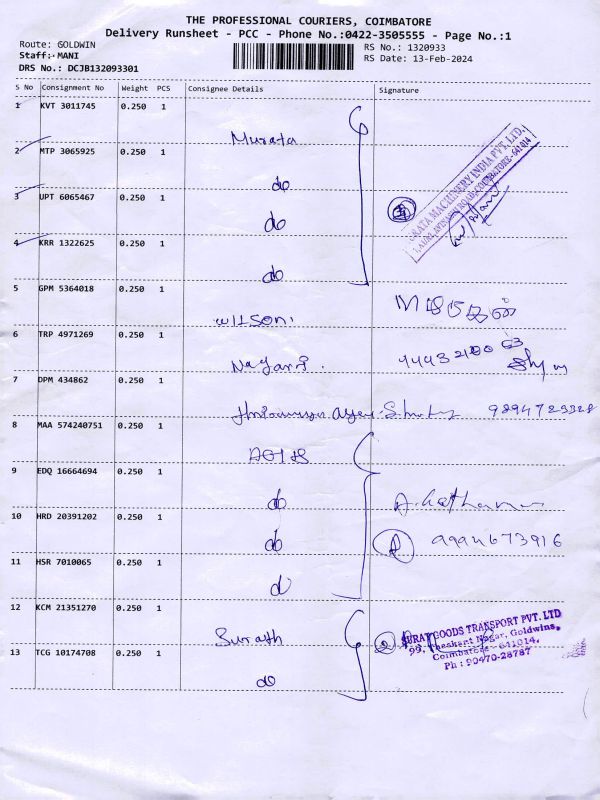 THE PROFESSIONAL COURIERS, COIMBATORE
Delivery Runsheet - PCC - Phone No.:0422-3505555 - Page No.:1
Route: GOLDWIN RS No.: 1320933
Staff:- MANI RS Date: 13-Feb-2024
DRS No.: DCJB132093301
S No Consignment No Weight PCS Consignee Details Signature
1 KVT 3011745 0.250 1
Murata
2 MTP 3065925 0.250 1
do
3 UPT 6065467 0.250 1
do
4 KRR 1322625 0.250 1
do
MURATA MACHINERY INDIA PVT. LTD.
5 GPM 5364018 0.250 1
Wilson.
6 TRP 4971269 0.250 1
7 DPM 434862 0.250 1
9894723328
8 MAA 574240751 0.250 1
9 EDQ 16664694 0.250 1
do
10 HRD 20391202 0.250 1
do 9994673916
11 HSR 7010065 0.250 1
do
12 KCM 21351270 0.250 1
13 TCG 10174708 0.250 1
do
SURAT GOODS TRANSPORT PVT. LTD
99, Nagar, Goldwins,
Coimbatore - 641014.
Ph : 90470-28787